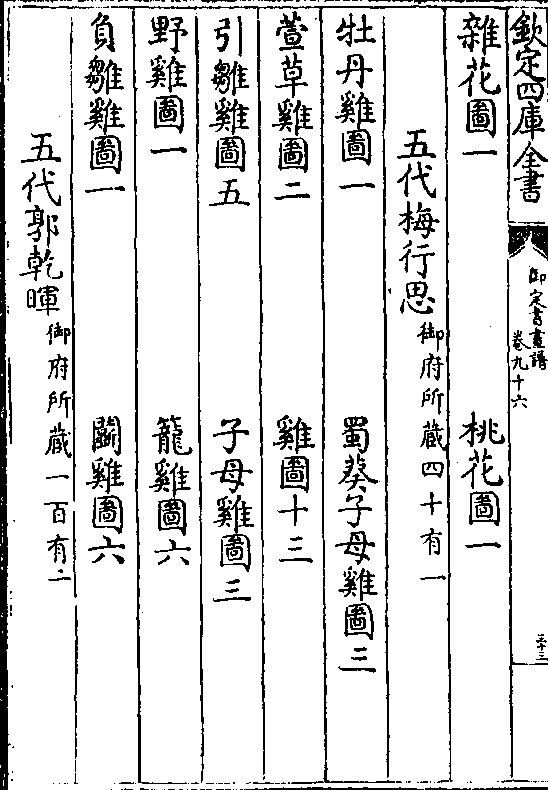 欽定四庫全書
御定書畫譜
卷九十六
三十三
雜花圖一　桃花圖一
五代梅行思御府所藏四十有一
牡丹雞圖一　蜀葵子母雞圖三
萱草雞圖二　雞圖十三
引雛雞圖五　子母雞圖三
野雞圖一　籠雞圖六
負雛雞圖一　鬭雞圖六
五代郭乾暉御府所藏一百有二